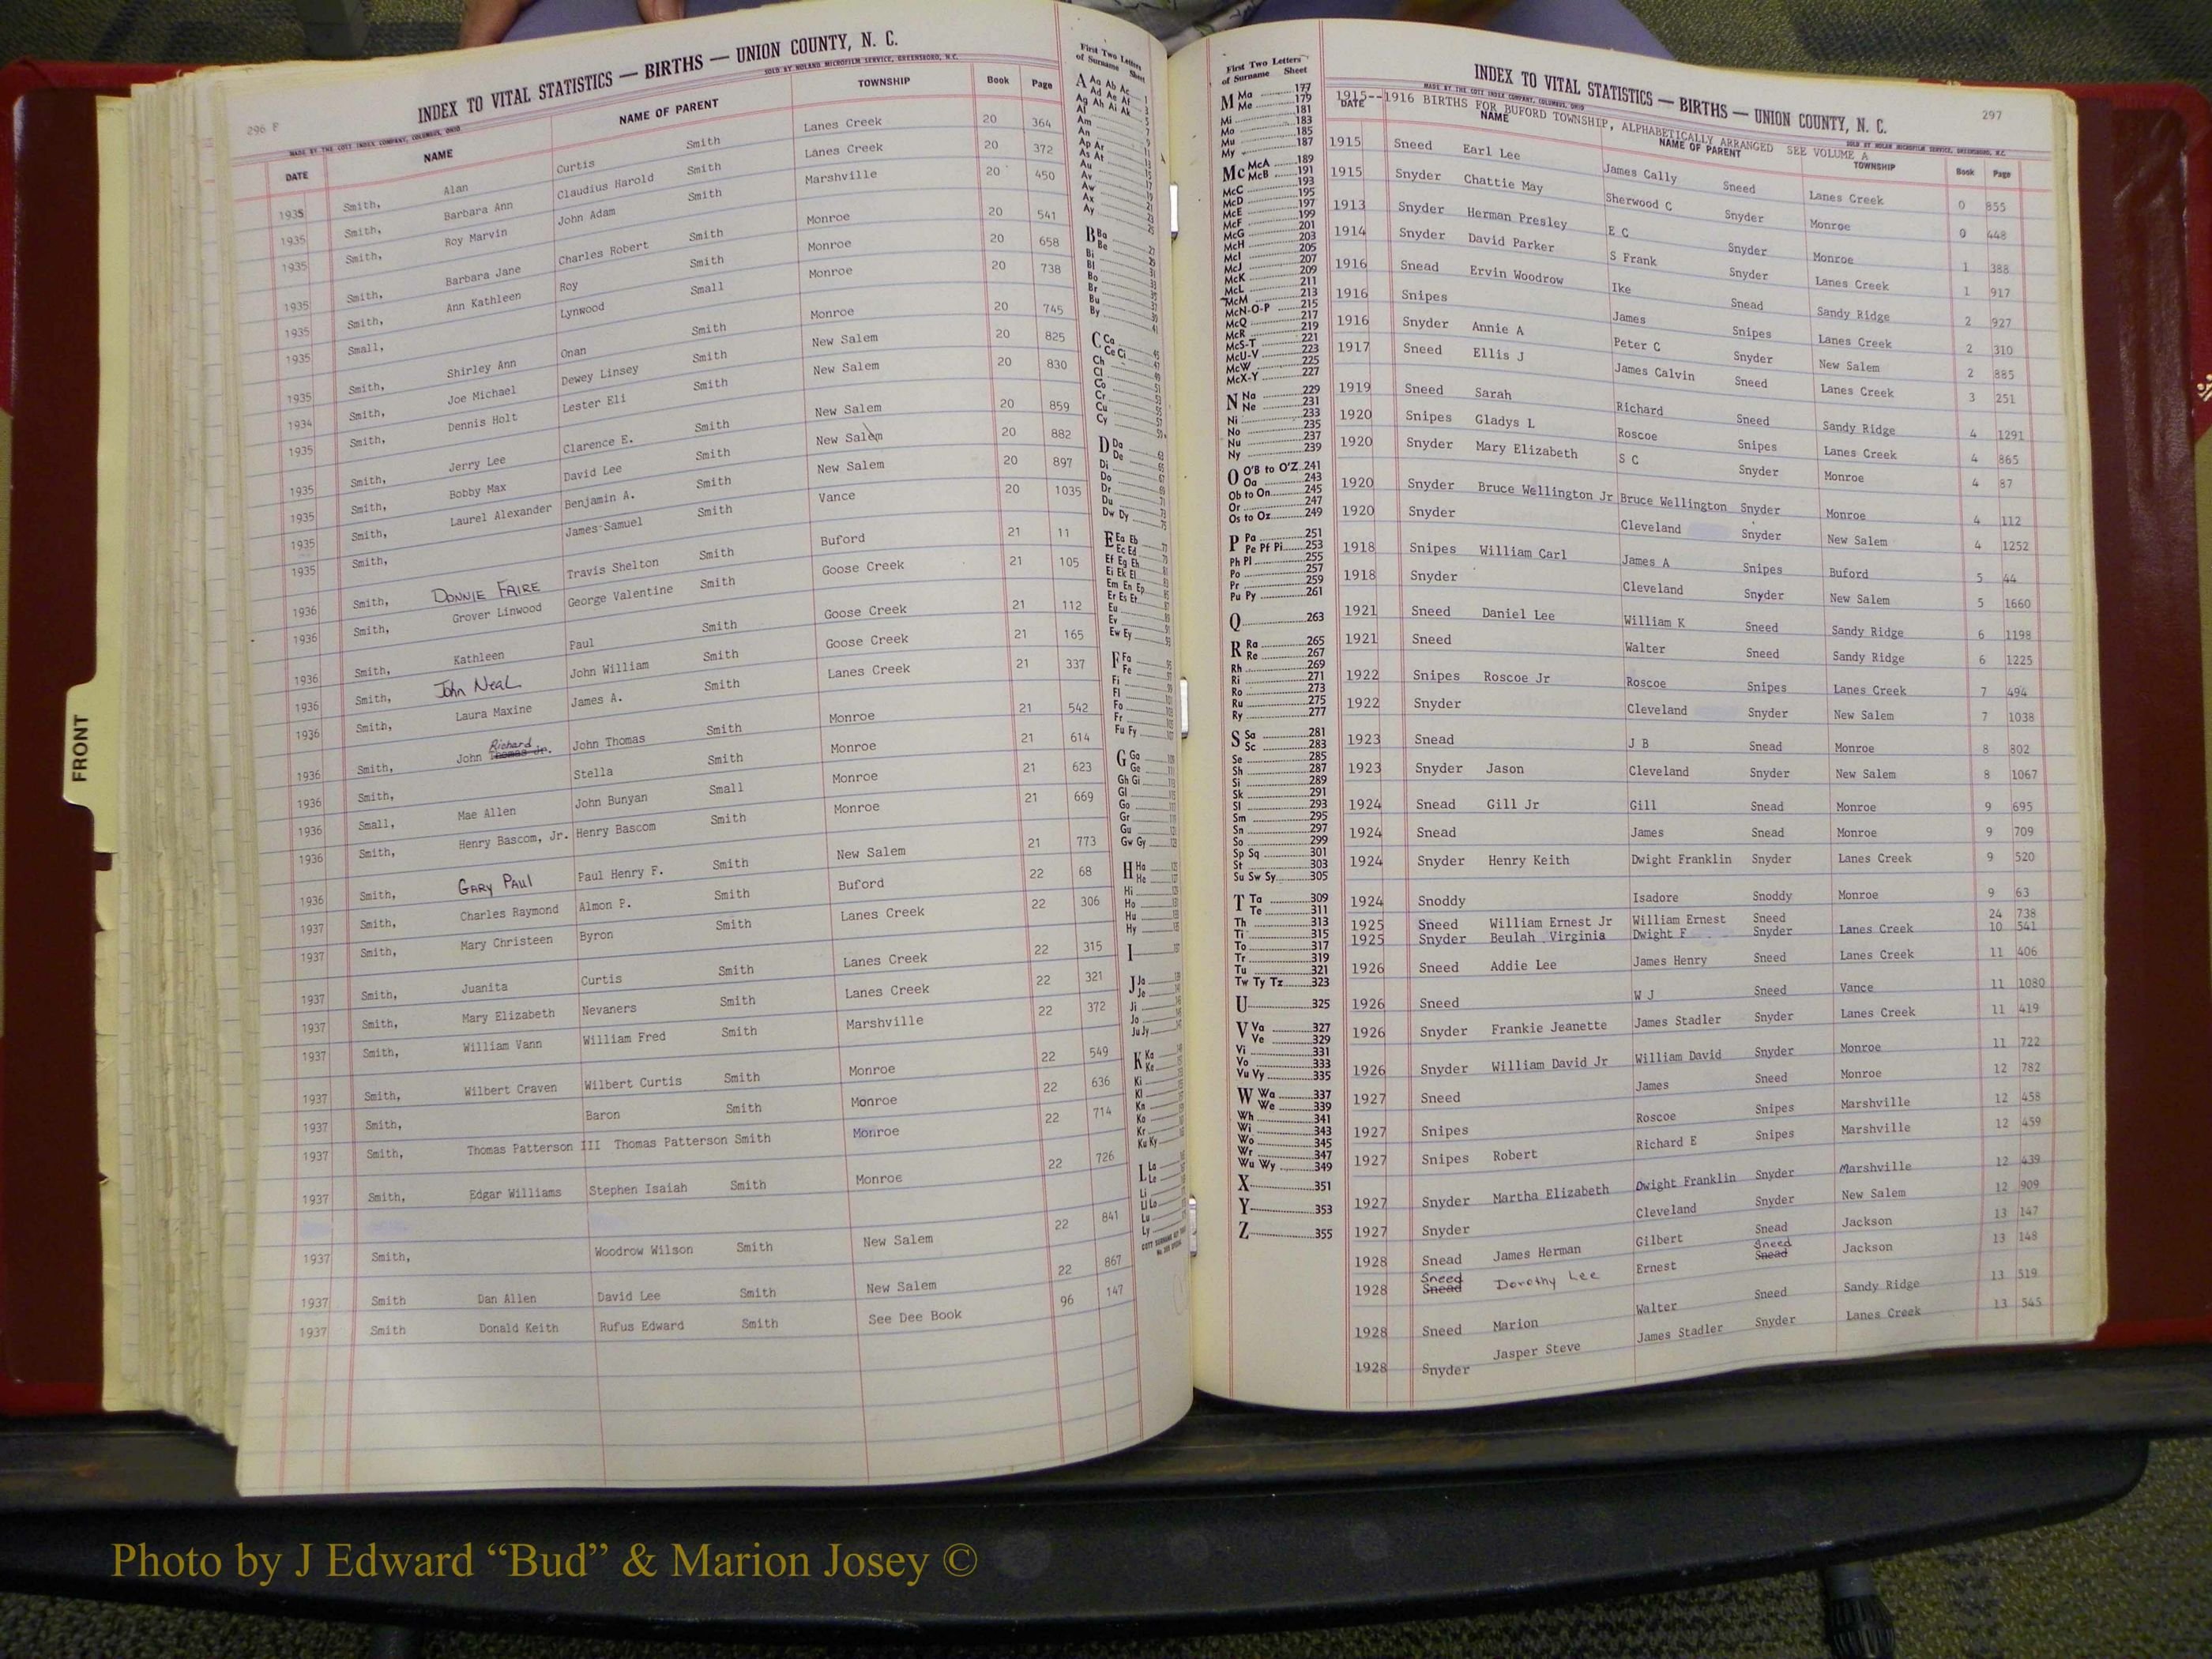 296 F
INDEX TO VITAL STATISTICS — BIRTHS — UNION COUNTY, N. C.
MADE BY THE COTT INDEX COMPANY, COLUMBUS, OHIO SOLD BY NOLAND MICROFILM SERVICE, GREENSBORO, N.C.
DATE NAME NAME OF PARENT TOWNSHIP Book Page
1935 Smith, Alan Curtis Smith Lanes Creek 20 364
1935 Smith, Barbara Ann Claudius Harold Smith Lanes Creek 20 372
1935 Smith, Roy Marvin John Adam Smith Marshville 20 450
1935 Smith, Barbara Jane Charles Robert Smith Monroe 20 541
1935 Smith, Ann Kathleen Roy Smith Monroe 20 658
1935 Small, Lynwood Small Monroe 20 738
1935 Smith, Shirley Ann Onan Smith Monroe 20 745
1934 Smith, Joe Michael Dewey Linsey Smith New Salem 20 825
1935 Smith, Dennis Holt Lester Eli Smith New Salem 20 830
1935 Smith, Jerry Lee Clarence E. Smith New Salem 20 859
1935 Smith, Bobby Max David Lee Smith New Salem 20 882
1935 Smith, Laurel Alexander Benjamin A. Smith New Salem 20 897
1935 Smith, James Samuel Smith Vance 20 1035
1936 Smith, DONNIE FAIRE Travis Shelton Smith Buford 21 11
1936 Smith, Grover Linwood George Valentine Smith Goose Creek 21 105
1936 Smith, Kathleen Paul Smith Goose Creek 21 112
1936 Smith, John Neal John William Smith Goose Creek 21 165
1936 Smith, Laura Maxine James A. Smith Lanes Creek 21 337
1936 Smith, John Richard Thomas Jr. John Thomas Smith Monroe 21 542
1936 Smith, Stella Smith Monroe 21 614
1936 Small, Mae Allen John Bunyan Small Monroe 21 623
1936 Smith, Henry Bascom, Jr. Henry Bascom Smith Monroe 21 669
1936 Smith, GARY PAUL Paul Henry F. Smith New Salem 21 773
1937 Smith, Charles Raymond Almon P. Smith Buford 22 68
1937 Smith, Mary Christeen Byron Smith Lanes Creek 22 306
1937 Smith, Juanita Curtis Smith Lanes Creek 22 315
1937 Smith, Mary Elizabeth Nevaners Smith Lanes Creek 22 321
1937 Smith, William Vann William Fred Smith Marshville 22 372
1937 Smith, Wilbert Craven Wilbert Curtis Smith Monroe 22 549
1937 Smith, Baron Smith Monroe 22 636
1937 Smith, Thomas Patterson III Thomas Patterson Smith Monroe 22 714
1937 Smith, Edgar Williams Stephen Isaiah Smith Monroe 22 726
1937 Smith, Woodrow Wilson Smith New Salem 22 841
1937 Smith Dan Allen David Lee Smith New Salem 22 867
1937 Smith Donald Keith Rufus Edward Smith See Dee Book 96 147
FRONT
First Two Letters
of Surname Sheet
A Aa Ab Ac
Ad Ae Af
Ag Ah Ai Ak
Al
Am
An
Ap Ar
As At
Au
Av
Aw
Ax
Ay
B Ba
Be
Bi
Bl
Bo
Br
Bu
By
C Ca
Ce Ci
Ch
Cl
Co
Cr
Cu
Cy
D Da
De
Di
Do
Dr
Du
Dw Dy
E Ea Eb
Ec Ed
Ef Eg Eh
Ei Ek El
Em En Ep
Er Es Et
Eu
Ev
Ew Ey
F Fa
Fe
Fi
Fl
Fo
Fr
Fu Fy
G Ga
Ge
Gh Gi
Gl
Go
Gr
Gu
Gw Gy
H Ha
He
Hi
Ho
Hu
Hy
I
J Ja
Je
Ji
Jo
Ju Jy
K Ka
Ke
Ki
Kl
Kn
Ko
Kr
Ku Ky
L La
Le
Li
Ll Lo
Lu
Ly
First Two Letters
of Surname Sheet
M Ma 177
Me 179
Mi 181
Mo 183
Mu 185
My 187
Mc McA 189
McB 191
McC 193
McD 195
McE 197
McF 199
McG 201
McH 203
McI 205
McJ 207
McK 209
McL 211
McM 213
McN-O-P 215
McQ 217
McR 219
McS-T 221
McU-V 223
McW 225
McX-Y 227
N Na 229
Ne 231
Ni 233
No 235
Nu 237
Ny 239
O O'B to O'Z 241
Oa 243
Ob to On 245
Or 247
Os to Oz 249
P Pa 251
Pe Pf Pi 253
Ph Pl 255
Po 257
Pr 259
Pu Py 261
Q 263
R Ra 265
Re 267
Rh 269
Ri 271
Ro 273
Ru 275
Ry 277
S Sa 281
Sc 283
Se 285
Sh 287
Si 289
Sk 291
Sl 293
Sm 295
Sn 297
So 299
Sp Sq 301
St 303
Su Sw Sy 305
T Ta 309
Te 311
Th 313
Ti 315
To 317
Tr 319
Tu 321
Tw Ty Tz 323
U 325
V Va 327
Ve 329
Vi 331
Vo 333
Vu Vy 335
W Wa 337
We 339
Wh 341
Wi 343
Wo 345
Wr 347
Wu Wy 349
X 351
Y 353
Z 355
INDEX TO VITAL STATISTICS — BIRTHS — UNION COUNTY, N. C. 297
MADE BY THE COTT INDEX COMPANY, COLUMBUS, OHIO
1915--1916 BIRTHS FOR BUFORD TOWNSHIP, ALPHABETICALLY ARRANGED SEE VOLUME A
DATE NAME NAME OF PARENT TOWNSHIP Book Page
1915 Sneed Earl Lee James Cally Sneed Lanes Creek 0 855
1915 Snyder Chattie May Sherwood C Snyder Monroe 0 448
1913 Snyder Herman Presley E C Snyder Monroe 1 388
1914 Snyder David Parker S Frank Snyder Lanes Creek 1 917
1916 Snead Ervin Woodrow Ike Snead Sandy Ridge 2 927
1916 Snipes James Snipes Lanes Creek 2 310
1916 Snyder Annie A Peter C Snyder New Salem 2 885
1917 Sneed Ellis J James Calvin Sneed Lanes Creek 3 251
1919 Sneed Sarah Richard Sneed Sandy Ridge 4 1291
1920 Snipes Gladys L Roscoe Snipes Lanes Creek 4 865
1920 Snyder Mary Elizabeth S C Snyder Monroe 4 87
1920 Snyder Bruce Wellington Jr Bruce Wellington Snyder Monroe 4 112
1920 Snyder Cleveland Snyder New Salem 4 1252
1918 Snipes William Carl James A Snipes Buford 5 44
1918 Snyder Cleveland Snyder New Salem 5 1660
1921 Sneed Daniel Lee William K Sneed Sandy Ridge 6 1198
1921 Sneed Walter Sneed Sandy Ridge 6 1225
1922 Snipes Roscoe Jr Roscoe Snipes Lanes Creek 7 494
1922 Snyder Cleveland Snyder New Salem 7 1038
1923 Snead J B Snead Monroe 8 802
1923 Snyder Jason Cleveland Snyder New Salem 8 1067
1924 Snead Gill Jr Gill Snead Monroe 9 695
1924 Snead James Snead Monroe 9 709
1924 Snyder Henry Keith Dwight Franklin Snyder Lanes Creek 9 520
1924 Snoddy Isadore Snoddy Monroe 9 63
1925 Sneed William Ernest Jr William Ernest Sneed 24 738
1925 Snyder Beulah Virginia Dwight F Snyder Lanes Creek 10 541
1926 Sneed Addie Lee James Henry Sneed Lanes Creek 11 406
1926 Sneed W J Sneed Vance 11 1080
1926 Snyder Frankie Jeanette James Stadler Snyder Lanes Creek 11 419
1926 Snyder William David Jr William David Snyder Monroe 11 722
1927 Sneed James Sneed Monroe 12 782
1927 Snipes Roscoe Snipes Marshville 12 458
1927 Snipes Robert Richard E Snipes Marshville 12 459
1927 Snyder Martha Elizabeth Dwight Franklin Snyder Marshville 12 439
1927 Snyder Cleveland Snyder New Salem 12 909
1928 Snead James Herman Gilbert Snead Jackson 13 147
1928 Sneed Snead Dorothy Lee Ernest Sneed Snead Jackson 13 148
1928 Sneed Marion Walter Sneed Sandy Ridge 13 519
1928 Snyder Jasper Steve James Stadler Snyder Lanes Creek 13 545
Photo by J Edward “Bud” & Marion Josey ©